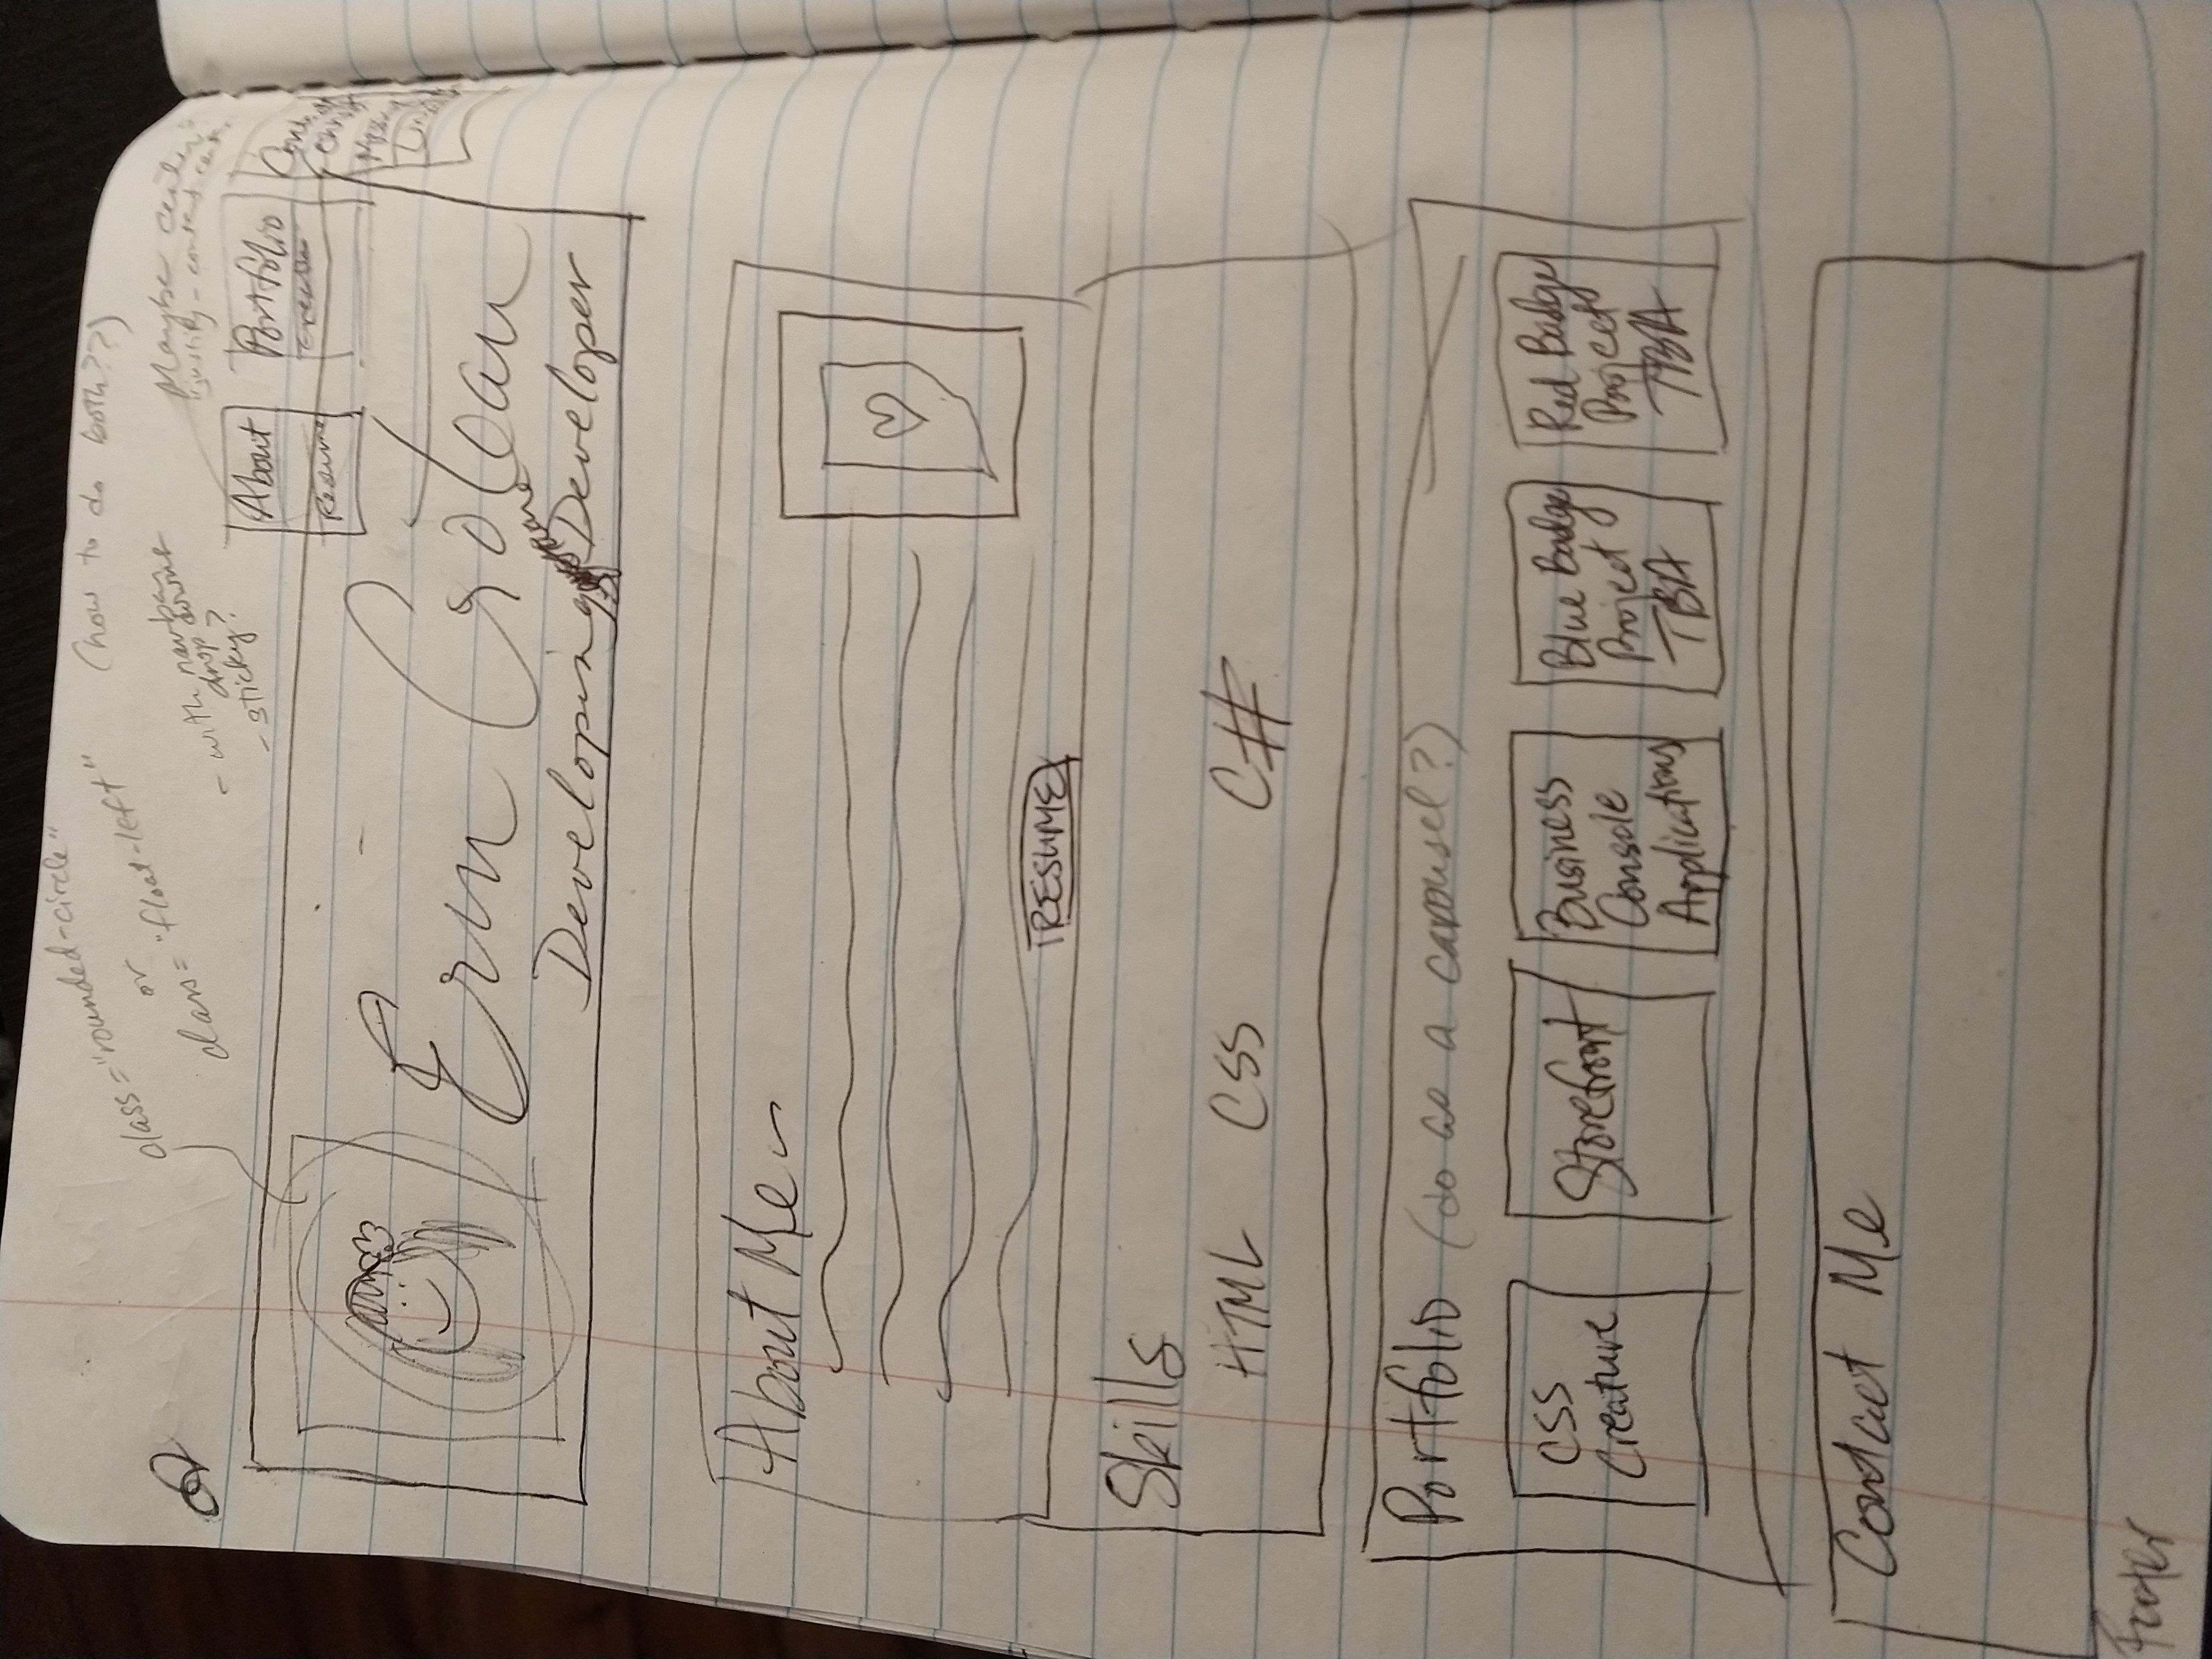 class="rounded-circle"
or
class="float-left"
(how to do both??)
- with navbar
drop downs
- sticky?
Maybe center
"justify-content-center"
About
Resume
Portfolio
Erin Golau
Developing Developer
software
About Me
RESUME
Skills
HTML CSS C#
Portfolio (do as a carousel?)
CSS
Creature
Storefront
Business
Console
Applications
Blue Badge
Project
TBA
Red Badge
Project
TBA
Contact Me
Footer